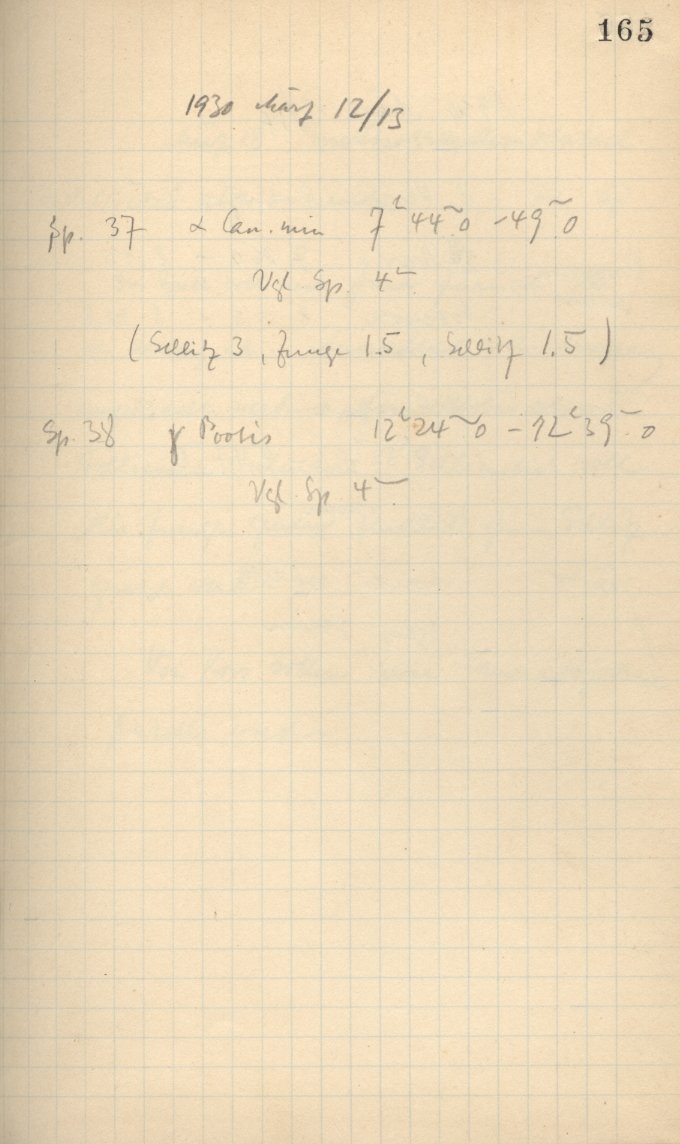 165
1930 März 12/13
Sp. 37 α Can. min 7ʰ44ᵐ.0 - 49ᵐ.0
Vgl. Sp. 4ᵐ
(Schlitz 3, Zunge 1.5, Schlitz 1.5)
Sp. 38 γ Bootis 12ʰ24ᵐ.0 - 12ʰ39ᵐ.0
Vgl. Sp. 4ᵐ